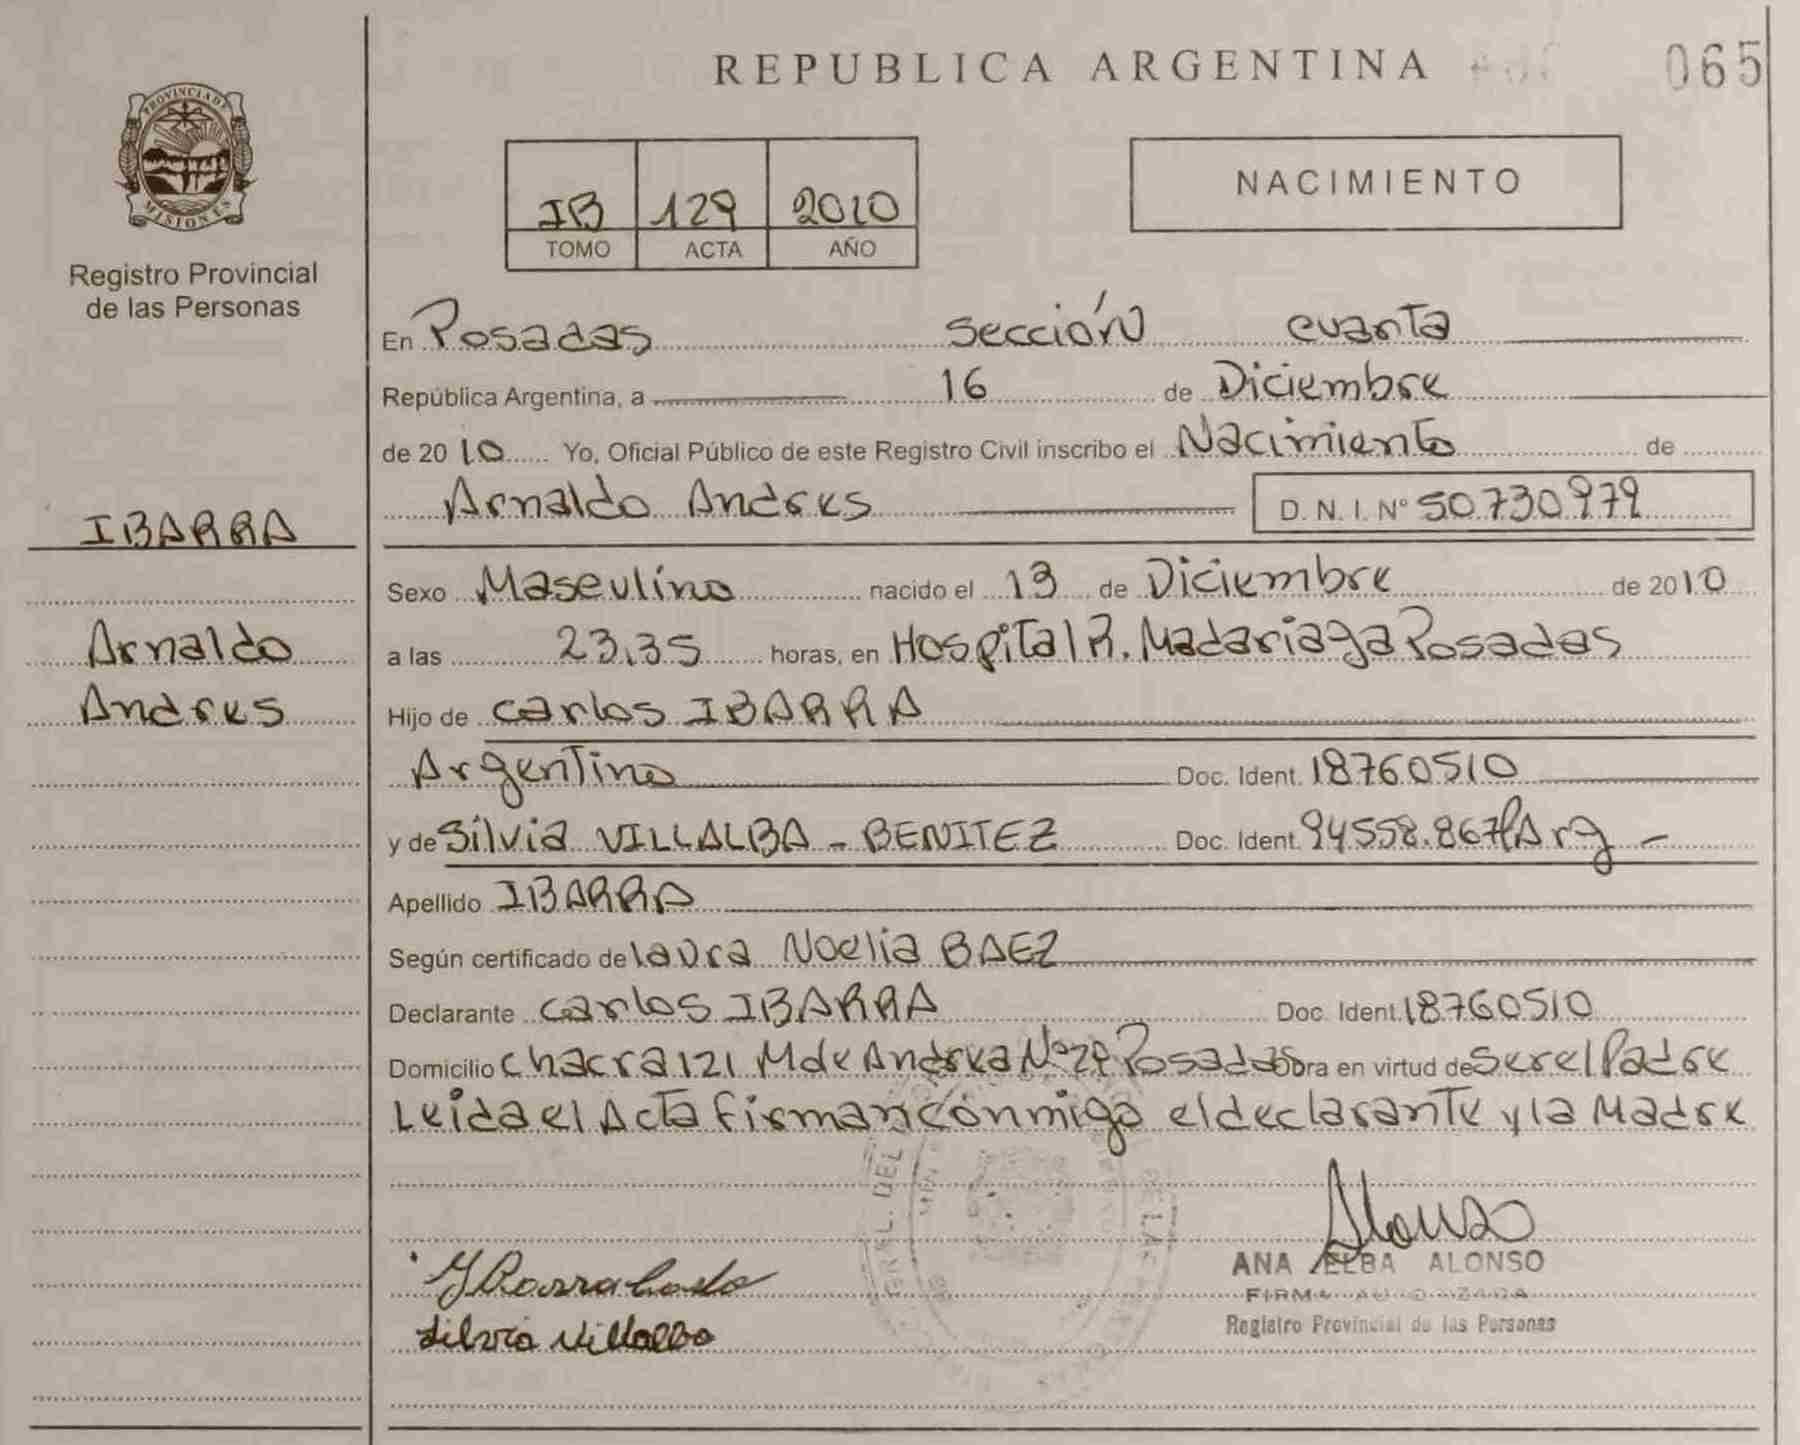 REPUBLICA ARGENTINA
065
PROVINCIA DE
MISIONES
Registro Provincial
de las Personas
IB 129 2010
TOMO ACTA AÑO
NACIMIENTO
En Posadas sección cuarta
República Argentina, a 16 de Diciembre
de 2010 Yo, Oficial Público de este Registro Civil inscribo el Nacimiento de
Arnaldo Andres D.N.I. Nº 50.730.979
IBARRA
Arnaldo
Andres
Sexo Masculino nacido el 13 de Diciembre de 2010
a las 23,35 horas, en Hospital R. Madariaga Posadas
Hijo de Carlos IBARRA
Argentino Doc. Ident. 18760510
y de Silvia VILLALBA - BENITEZ Doc. Ident. 94558.867 Arg -
Apellido IBARRA
Según certificado de laura Noelia BAEZ
Declarante Carlos IBARRA Doc. Ident. 18760510
Domicilio Chacra 121 M de Andrea Nº 29 Posadas Obra en virtud de Ser el Padre
Leida el Acta firman conmigo el declarante y la Madre
GRAL. DEL
Alonso
ANA ELBA ALONSO
FIRMA AUTORIZADA
Registro Provincial de las Personas
Silvia Villalba